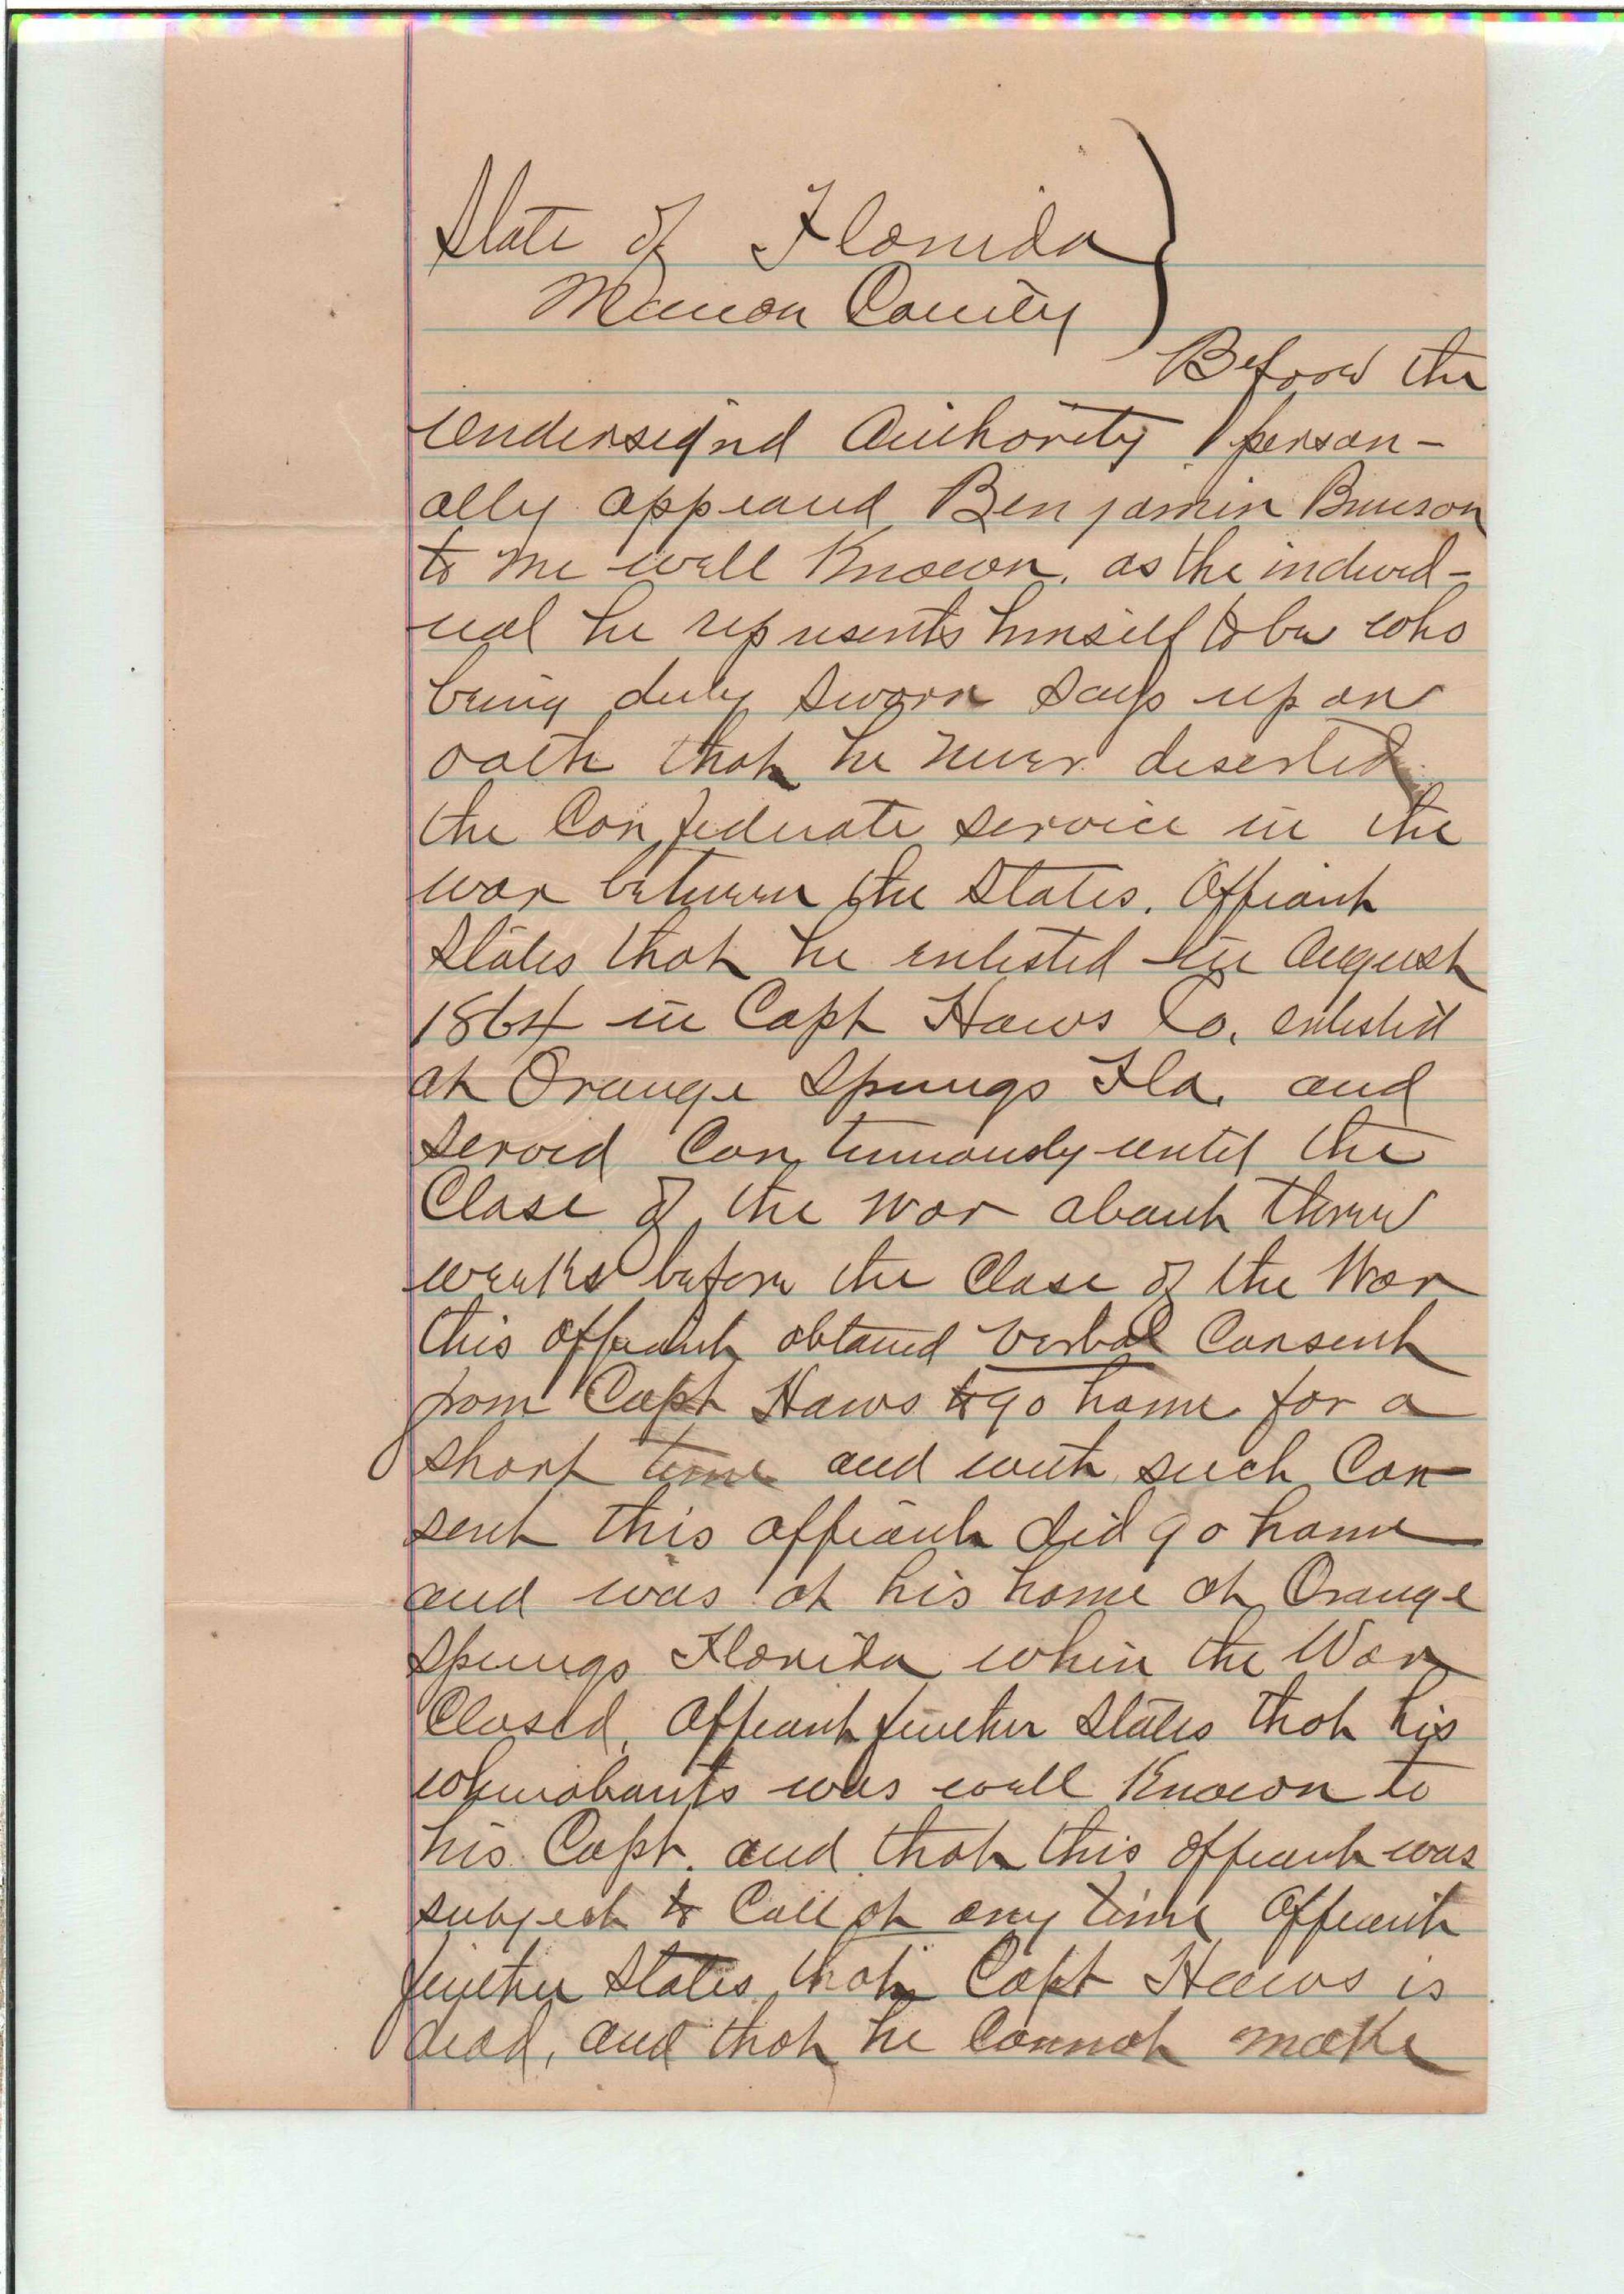 State of Florida
Marion County
Before the
undersignd Authority person-
ally appeared Benjamin Brunson
to me well Known, as the individ-
ual he represents himself to be who
being duly sworn says upon
oath that he never deserted
the Confederate service in the
war between the States. Affiant
States that he enlisted in August
1864 in Capt Haws Co. enlisted
at Orange Springs Fla. and
served Continuously until the
Close of the war about three
weeks before the Close of the War
this affiant obtained verbal Consent
from Capt Haws to go home for a
short time and with such Con-
sent this affiant did go home
and was at his home at Orange
Springs Florida when the War
Closed, Affiant further States that his
whereabouts was well Known to
his Capt. and that this affiant was
subject to Call at any time Affiant
further States that Capt Haws is
dead, and that he Cannot make